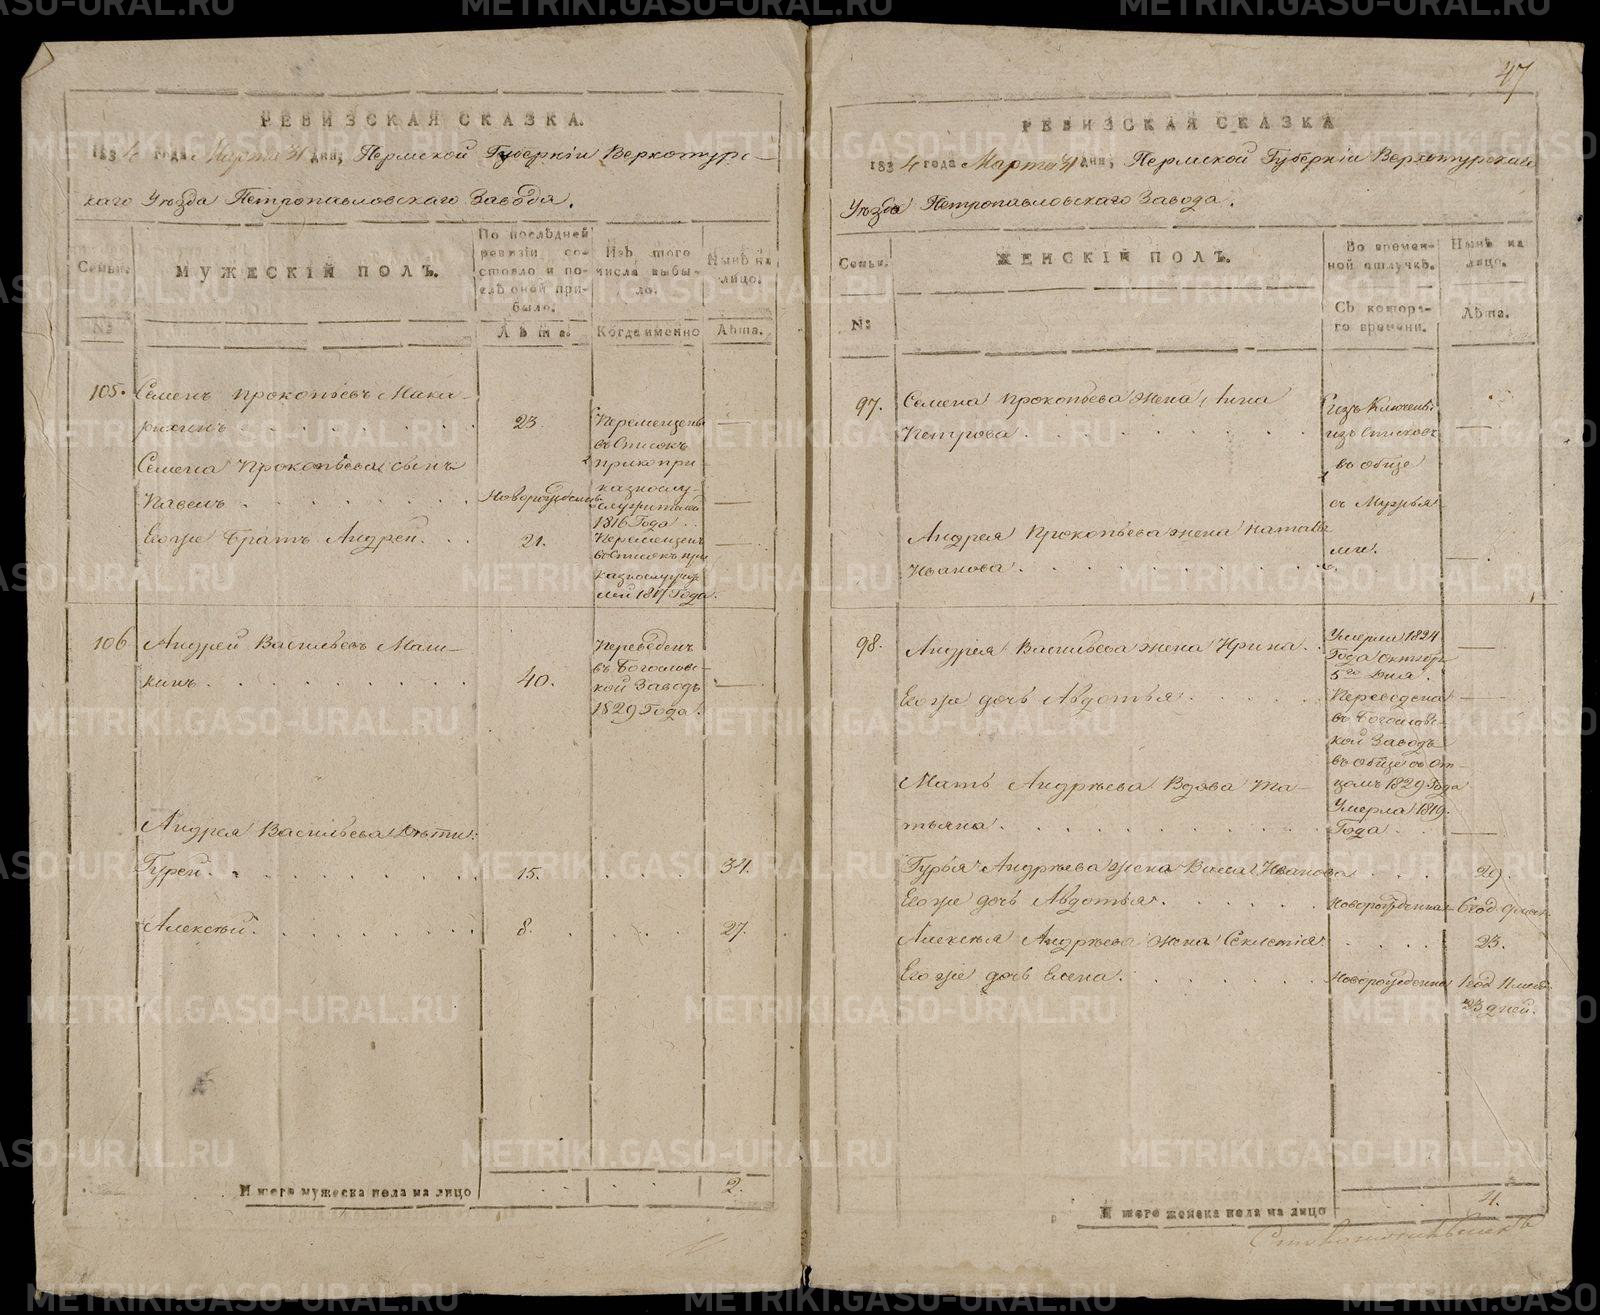 47
РЕВИЗСКАЯ СКАЗКА.
1834 года Марта 31 дня, Пермской Губерніи Верхотурс-
каго Уѣзда Петропавловскаго Завода.
Семьи.
№
МУЖЕСКІЙ ПОЛЪ.
По послѣдней
ревизіи со-
стояло и по-
слѣ оной при-
было.
Лѣта.
Изъ того
числа выбы-
ло.
Когда именно
Нынѣ на
лицо.
Лѣта.
105. Семенъ Прокопьевъ Мака-
рихинъ 23. Перемещенъ
въ Списокъ
Семена Прокопьева сынъ
Павелъ Новорожденъ
1816 Года
Егоже братъ Андрей 21. Перемещенъ
въ Списокъ при
казнослужите
лей 1817 Года.
106 Андрей Васильевъ Маш-
кинъ 40. Переведенъ
въ Богословс-
кой Заводъ
1829 Года.
Андрея Васильева Дѣти:
Гурей 15. 34.
Алексѣй 8. 27.
И того мужеска пола на лицо 2.
РЕВИЗСКАЯ СКАЗКА
1834 года Марта 31 дня, Пермской Губерніи Верхотурскаго
Уѣзда Петропавловскаго Завода.
Семьи.
№
ЖЕНСКІЙ ПОЛЪ.
Во времен-
ной отлучкѣ.
Съ котора-
го времени.
Нынѣ на
лицо.
Лѣта.
97. Семена Прокопьева жена Анна
Петрова изъ Списковъ
въ обще
съ Мужья-
ми.
Андрея Прокопьева жена Наталья
Иванова
98. Андрея Васильева жена Ирина Умерла 1824
Года Октября
5го Дня.
Егоже дочь Авдотья Переведена
въ Богословс-
кой Заводъ
въ обще съ От-
цомъ 1829 Года
Мать Андрѣева Вдова Та-
тьяна Умерла 1819
Года
Гурья Андрѣева жена Васса Иванова 29.
Егоже дочь Авдотья Новорожденная 6 год. 9 мес.
Алексѣя Андрѣева жена Секлетія 23.
Егоже дочь Елена Новорожденна 1 год 11 мес.
23 дней.
И того женска пола на лицо 4.
METRIKI.GASO-URAL.RU